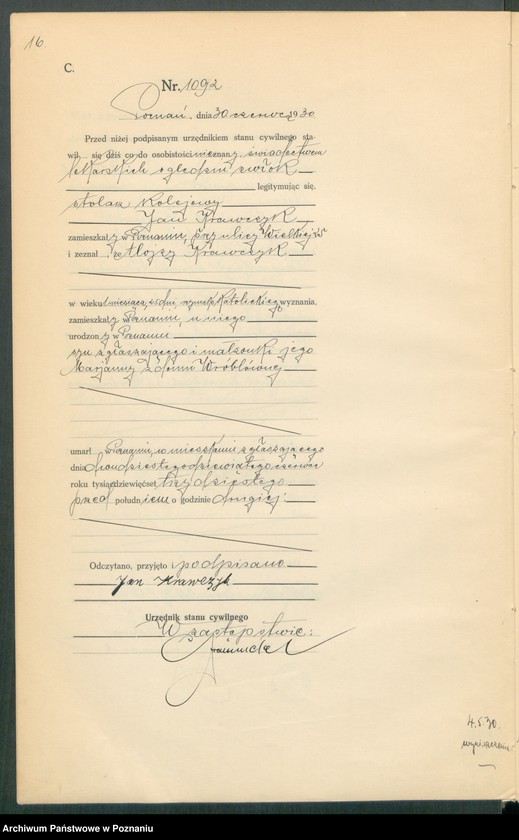 16.
C.
Nr. 1092
Poznań, dnia 30 czerwca 1930
Przed niżej podpisanym urzędnikiem stanu cywilnego sta-
wił się dziś co do osobistości nieznany, świadectwem
lekarskich oględzin zwłok
legitymując się,
stolarz kolejowy
Jan Krawczyk
zamieszkały w Poznaniu, przy ulicy Wielkiej
i zeznał, że Alojzy Krawczyk
w wieku dni, rzymskokatolickiego wyznania,
zamieszkały w Poznaniu, u niego
urodzony w Poznaniu
syn zgłaszającego i małżonki jego
Marjanny z domu Wróblównej
umarł w Poznaniu, w mieszkaniu zgłaszającego
dnia dwudziestego dziewiątego czerwca
roku tysiącdziewięćset trzydziestego
przed południem o godzinie drugiej.
Odczytano, przyjęto i podpisano
Jan Krawczyk
Urzędnik stanu cywilnego
W zastępstwie:
Archiwum Państwowe w Poznaniu